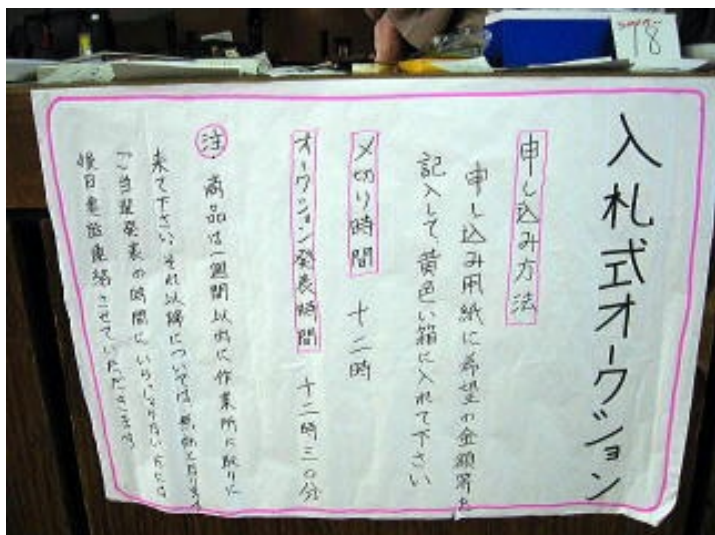 入札式オークション
申し込み方法
申し込み用紙に希望の金額等を
記入して、黄色い箱に入れて下さい
〆切り時間 十二時
オークション発表時間 十二時三〇分
注 商品は一週間以内に作業所に取りに
来て下さい。それ以降については無効となります
ご当選発表の時間にいらっしゃらない方には
後日電話連絡させていただきます
98